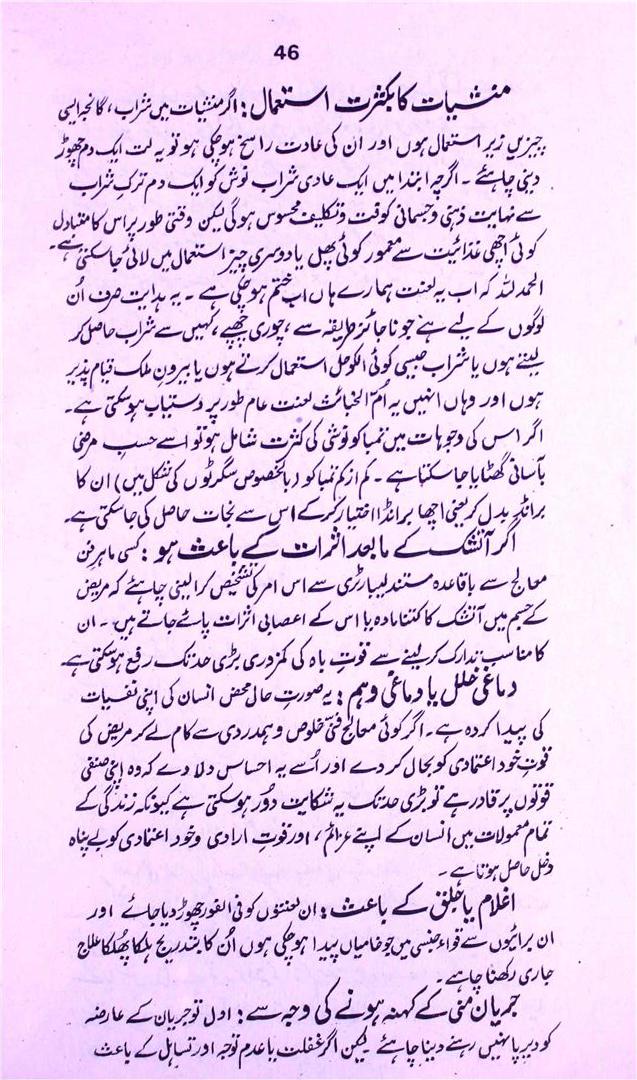 46
منشیات کا بکثرت استعمال : اگر منشیات میں شراب ، گانجہ ایسی
چیزیں زیر استعمال ہوں اور ان کی عادت راسخ ہو چکی ہو تو یہ لت ایک دم چھوڑ
دینی چاہئے ۔ اگرچہ ابتدا میں ایک عادی شراب نوش کو ایک دم ترکِ شراب
سے نہایت ذہنی و جسمانی کوفت و تکلیف محسوس ہوگی لیکن وقتی طور پر اس کا متبادل
کوئی اچھی غذائیت سے معمور کوئی پھل یا دوسری چیز استعمال میں لائی جا سکتی ہے ۔
الحمد للہ کہ اب یہ لعنت ہمارے ہاں اب ختم ہو چکی ہے ۔ یہ ہدایت صرف اُن
لوگوں کے لیے ہے جو ناجائز طریقہ سے ، چوری چھپے ، کہیں سے شراب حاصل کر
لیتے ہوں یا شراب جیسی کوئی الکوحل استعمال کرتے ہوں یا بیرونِ ملک قیام پذیر
ہوں اور وہاں انہیں یہ اُمّ الخبائث لعنت عام طور پر دستیاب ہو سکتی ہے ۔
اگر اس کی وجوہات میں تمباکو نوشی کی کثرت شامل ہو تو اسے حسبِ مرضی
بآسانی گھٹایا جا سکتا ہے ۔ کم از کم تمباکو (بالخصوص سگرٹوں کی شکل میں) ان کا
برانڈ بدل کر یعنی اچھا برانڈ اختیار کر کے اس سے نجات حاصل کی جا سکتی ہے ۔
اگر آتشک کے مابعد اثرات کے باعث ہو : کسی ماہر فن
معالج سے باقاعدہ مستند لیبارٹری سے اس امر کی تشخیص کرا لینی چاہئے کہ مریض
کے جسم میں آتشک کا کتنا مادہ یا اس کے اعصابی اثرات پائے جاتے ہیں ۔ ان
کا مناسب تدارک کر لینے سے قوتِ باہ کی کمزوری بڑی حد تک رفع ہو سکتی ہے ۔
دماغی خلل یا دماغی وہم : یہ صورتِ حالی محض انسان کی اپنی نفسیات
کی پیدا کردہ ہے ۔ اگر کوئی معالج فنی خلوص و ہمدردی سے کام لے کر مریض کی
قوتِ خود اعتمادی کو بحال کر دے اور اُسے یہ احساس دلا دے کہ وہ اپنی صنفی
قوتوں پر قادر ہے تو بڑی حد تک یہ شکایت دُور ہو سکتی ہے کیونکہ زندگی کے
تمام معمولات میں انسان کے اپنے عزائم ، اور قوتِ ارادی و خود اعتمادی کو بے پناہ
دخل حاصل ہوتا ہے ۔
اغلام یا جلق کے باعث : ان لعنتوں کو فی الفور چھوڑ دیا جائے اور
ان برائیوں سے قواءِ جنسی میں جو خامیاں پیدا ہو چکی ہوں اُن کا بتدریج ہلکا پھلکا علاج
جاری رکھنا چاہئے ۔
جریان منی کے کہنہ ہونے کی وجہ سے : اول تو جریان کے عارضہ
کو دیر پا نہیں رہنے دینا چاہئے لیکن اگر غفلت یا عدم توجہ اور تساہل کے باعث